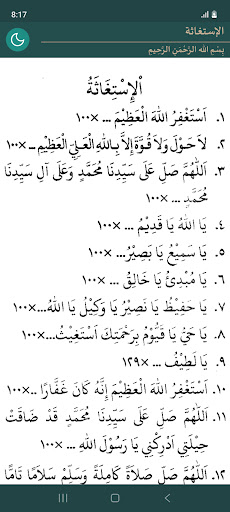 8:17
الإستغاثة
بِسْمِ اللهِ الرَّحْمٰنِ الرَّحِيْمِ
اْلإِسْتِغَاثَةُ
١. اَسْتَغْفِرُ اللهَ الْعَظِيْمَ ... ×١٠٠
٢. لاَحَوْلَ وَلاَ قُوَّةَ إِلاَّ بِاللهِ الْعَلِيِّ الْعَظِيْمِ ... ×١٠٠
٣. اَللّٰهُمَّ صَلِّ عَلَى سَيِّدِنَا مُحَمَّدٍ وَعَلَى آلِ سَيِّدِنَا
مُحَمَّدٍ ... ×١٠٠
٤. يَا اَللهُ يَا قَدِيْمُ ... ×١٠٠
٥. يَا سَمِيْعُ يَا بَصِيْرُ... ×١٠٠
٦. يَا مُبْدِئُ يَا خَالِقُ ... ×١٠٠
٧. يَا حَفِيْظُ يَا نَصِيْرُ يَا وَكِيْلُ يَا اَللهُ...×١٠٠
٨. يَا حَيُّ يَا قَيُّوْمُ بِرَحْمَتِكَ اَسْتَغِيْثُ...×١٠٠
٩. يَا لَطِيْفُ ... ×١٢٩
١٠. اَسْتَغْفِرُ اللهَ الْعَظِيْمَ إِنَّهُ كَانَ غَفَّارًا ..×١٠٠
١١. اَللّٰهُمَّ صَلِّ عَلَى سَيِّدِنَا مُحَمَّدٍ قَدْ ضَاقَتْ
حِيْلَتِي اَدْرِكْنِي يَا رَسُوْلَ اللهِ ... ×١٠٠
١٢. اَللّٰهُمَّ صَلِّ صَلاَةً كَامِلَةً وَسَلِّمْ سَلاَمًا تَامًّا